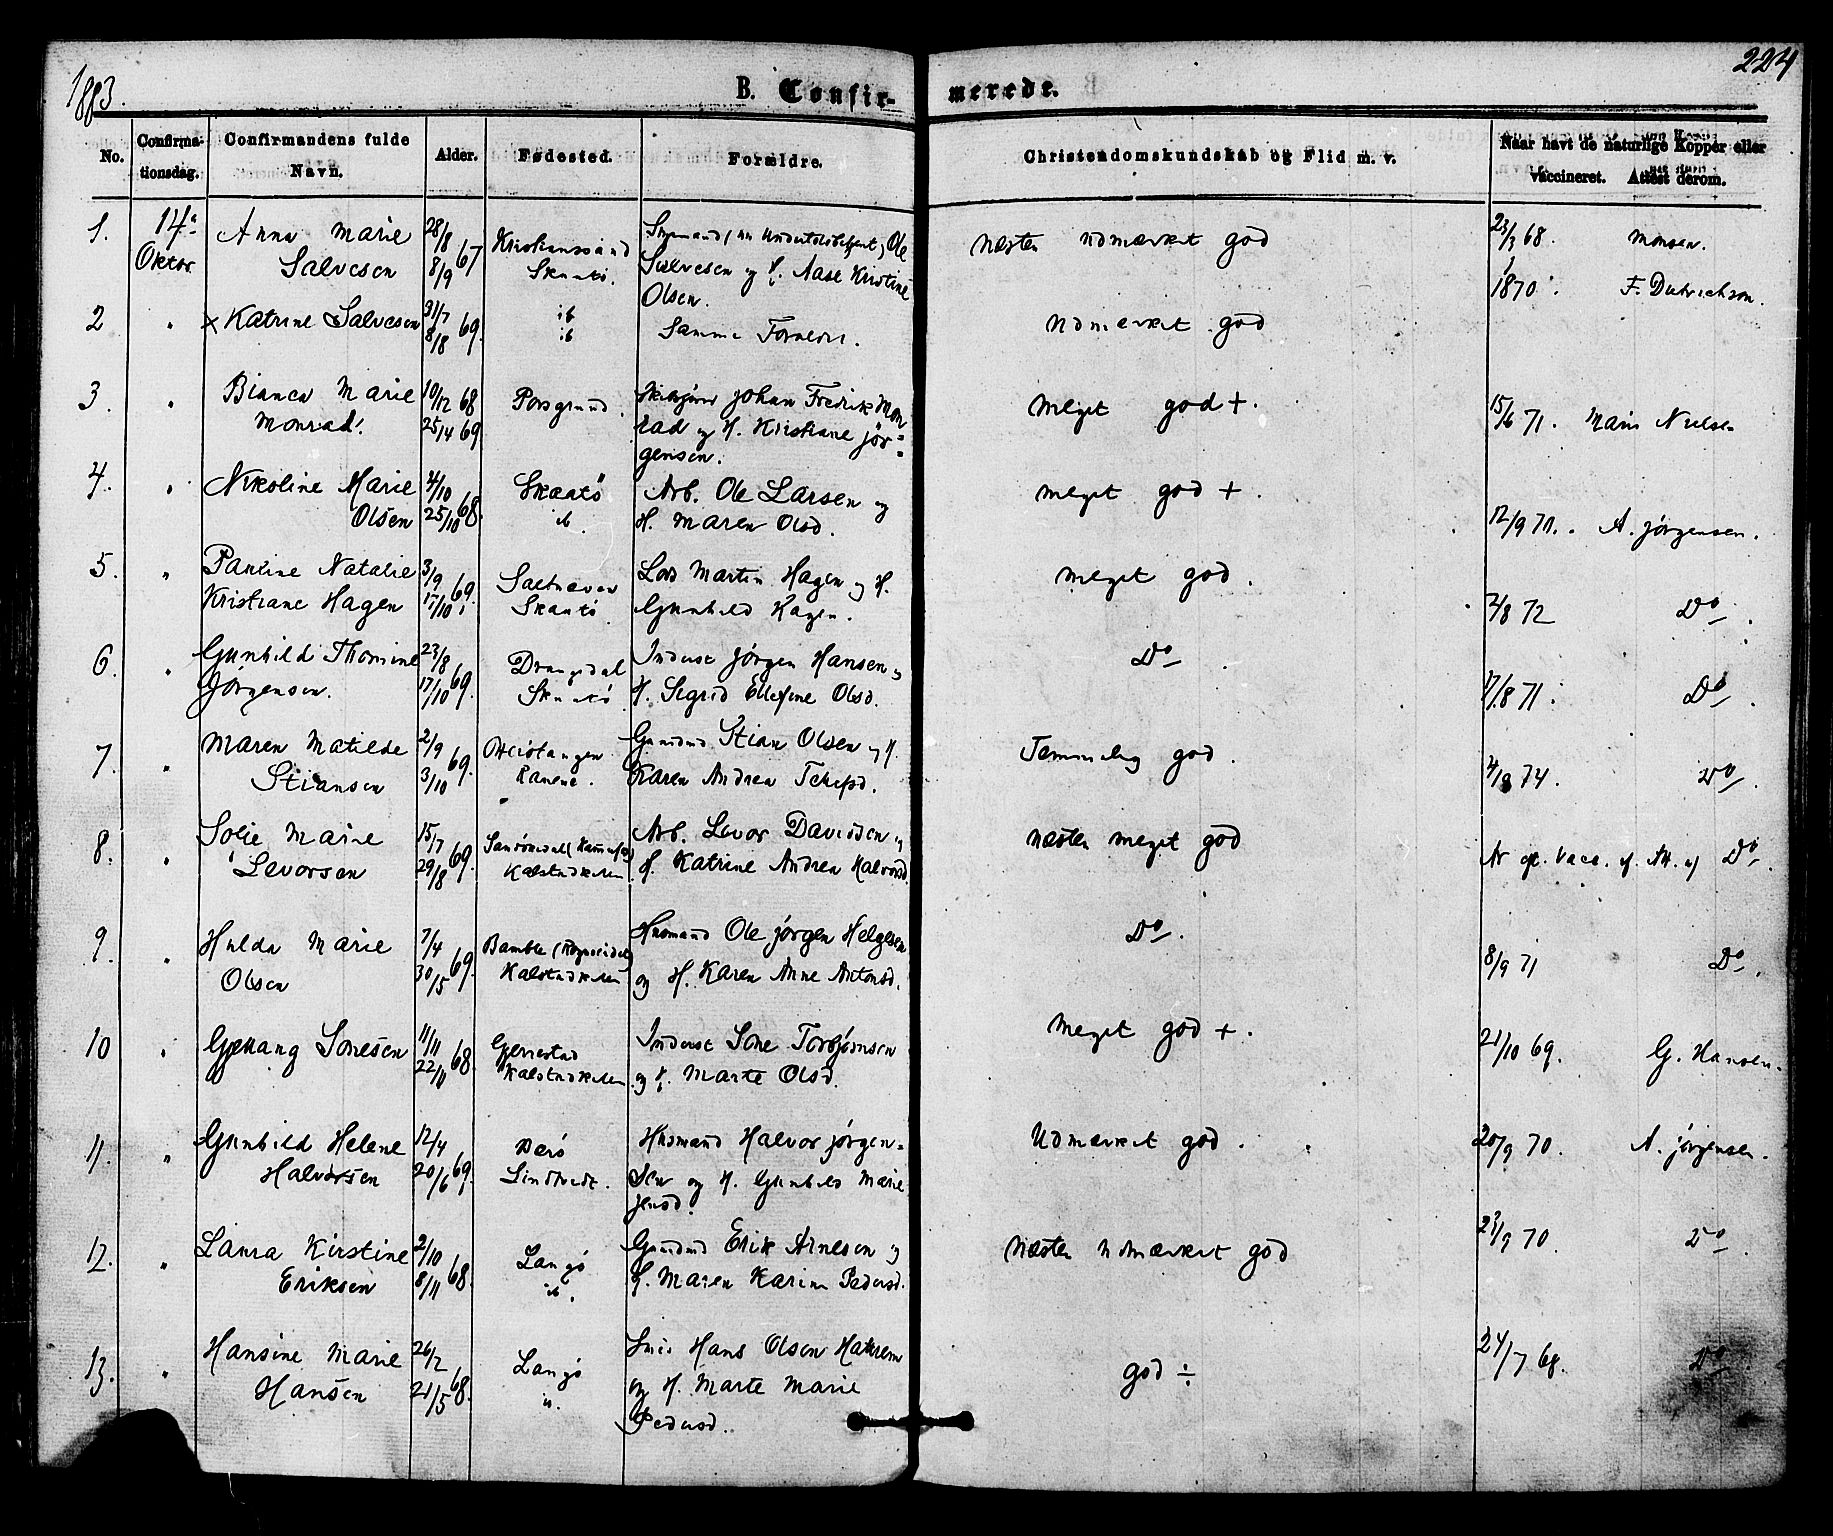 1883.
B. Confir-
merede.
224
No.
Confirma-
tionsdag.
Confirmandens fulde
Navn.
Alder.
Fødested.
Forældre.
Christendomskundskab og Flid m. v.
Naar havt de naturlige Kopper eller
vaccineret. Attest derom.
1. 14de Anna Marie 28/8 67 Kristianssand Ole Næsten udmærket god 23/3 68. Monsen.
Oktor Salvesen 8/9 Skaatö. Salvesen og H. Aase Kristine
Olsen. 1870.
2 " × Katrine Salvesen 31/7 69. ib Samme Forældre. Udmærket god
8/18 ib
3. " Bianca Marie 10/12 68 Porsgrund. Johan Fredrik Mon Meget god +. 15/6 71. Nielsen
Monrad. 25/4 69. rad og H. Kristiane Jör=
gensen.
4. " Nikoline Marie 4/10 68. Skaatö Arb. Ole Larsen og Meget god +.
Olsen 25/10 ib. H. Maren Olsd. 12/9 71. A. Jörgensen.
5. " Pauline Natalie 3/9 69. Martin Hagen og H. Meget god.
Kristiane Hagen 17/10 Skaatö Gunhild Hagen. 2/8 72 Do
6. " Gunhild Thomine 23/8 69. Drangedal Inderst Jörgen Hansen og Do
Jörgensen. 17/10 Skaatö H. Sigrid Ellefine Olsd. 17/8 71. Do
7. " Maren Matilde 2/9 69. Gaardmd Stian Olsen og H. Temmelig god.
Stiansen 3/10 Karen Andrea Terjesd. 4/8 74. Do
8. " Marie 15/7 69. Arb. Levor Davidsen og Næsten meget god
Levorsen 29/8 Kalstadkilen H. Katrine Andrea Halvorsd. Do
9. " Hulda Marie 7/4 69. Bamble Husmand Ole Jörgen Helgesen Do.
Olsen 30/5 Kalstadkilen og H. Karen Anne Antonsd. 8/9 71 Do
10 " Sonesen 11/11 68. Gjerrestad Inderst Sone Torbjörnsen Meget god +. 21/10 69. G. Hansen.
22/11 Kalstadkilen og H. Marte Olsd.
11. " Gunhild Helene 12/4 69. Husmand Halvor Jörgen= Udmærket god. 20/9 70. A. Jörgensen.
Halvorsen 20/6 Lindtvedt. sen og H. Gunhild Marie
Jensd.
12. " Laura Kirstine 2/10 68. Langö Gaardmd Erik Arnesen og Næsten udmærket god 23/9 70. Do
Eriksen 8/11 ib. H. Maren Karine Pedersd.
13. " Hansine Marie 26/2 68. Langö Hans Olsen god ÷ 24/7 68. Do
Hansen 21/5 og H. Marte Marie
Pedersd.